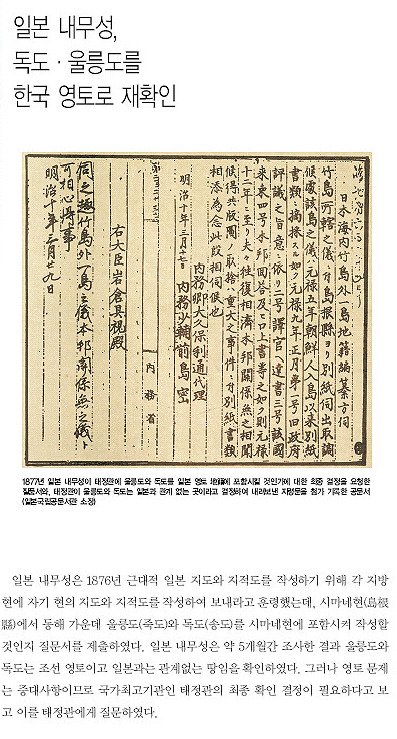 일본 내무성,
독도·울릉도를
한국 영토로 재확인
日本海内竹島外一島地籍編纂方伺
竹島所轄之儀ニ付島根縣ヨリ別紙伺出取調
候處該島之儀ハ元禄五年朝鮮人入島以来別紙
書類ニ摘採スル如ク元禄九年正月第一号旧政府
評議之旨意ニ依リ二号譯官ヘ達書三号該國
来柬四号本邦回答及ヒ口上書等之如ク則元禄
十二年ニ至リ夫々往復相濟本邦關係無之相聞
候得共版圖ノ取捨ハ重大之事件ニ付別紙書類
相添為念此段相伺候也
明治十年三月十七日
内務卿大久保利通代理
内務少輔前島密
右大臣岩倉具視殿
内務省
伺之趣竹島外一島之儀本邦關係無之儀ト
可相心得事
明治十年三月廿九日
1877년 일본 내무성이 태정관에 울릉도와 독도를 일본 영토 地籍에 포함시킬 것인가에 대한 최종 결정을 요청한
질문서와, 태정관이 울릉도와 독도는 일본과 관계 없는 곳이라고 결정하여 내려보낸 지령문을 첨가 기록한 공문서
(일본국립공문서관 소장)
일본 내무성은 1876년 근대적 일본 지도와 지적도를 작성하기 위해 각 지방
현에 자기 현의 지도와 지적도를 작성하여 보내라고 훈령했는데, 시마네현(島根
縣)에서 동해 가운데 울릉도(죽도)와 독도(송도)를 시마네현에 포함시켜 작성할
것인지 질문서를 제출하였다. 일본 내무성은 약 5개월간 조사한 결과 울릉도와
독도는 조선 영토이고 일본과는 관계없는 땅임을 확인하였다. 그러나 영토 문제
는 중대사항이므로 국가최고기관인 태정관의 최종 확인 결정이 필요하다고 보
고 이를 태정관에게 질문하였다.